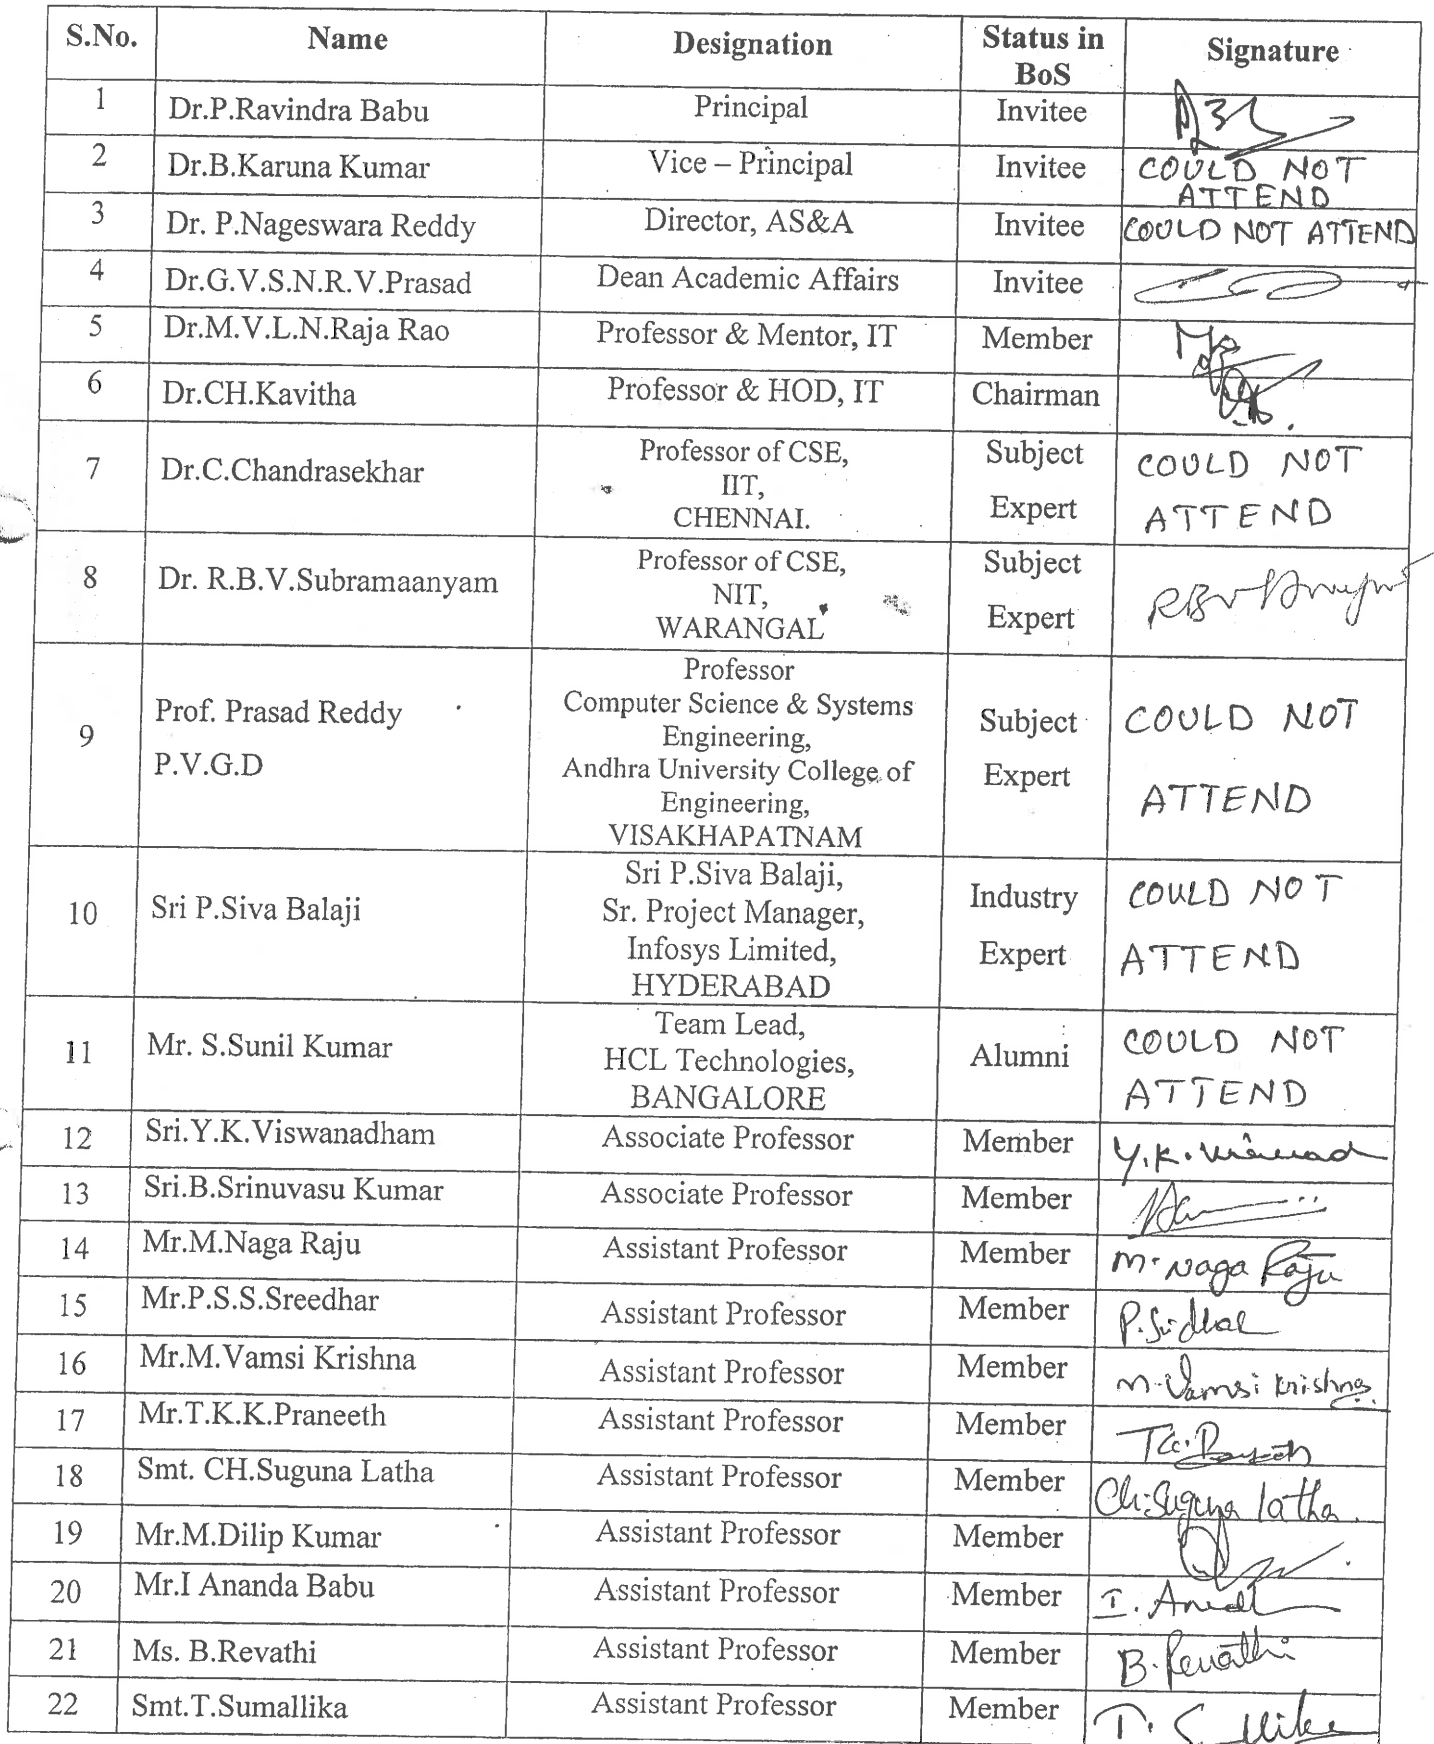 S.No. Name Designation Status in BoS Signature
1 Dr.P.Ravindra Babu Principal Invitee
2 Dr.B.Karuna Kumar Vice – Principal Invitee COULD NOT ATTEND
3 Dr. P.Nageswara Reddy Director, AS&A Invitee COULD NOT ATTEND
4 Dr.G.V.S.N.R.V.Prasad Dean Academic Affairs Invitee
5 Dr.M.V.L.N.Raja Rao Professor & Mentor, IT Member
6 Dr.CH.Kavitha Professor & HOD, IT Chairman
7 Dr.C.Chandrasekhar
Professor of CSE,
IIT,
CHENNAI.
Subject
Expert
COULD NOT
ATTEND
8 Dr. R.B.V.Subramaanyam
Professor of CSE,
NIT,
WARANGAL
Subject
Expert
9
Prof. Prasad Reddy
P.V.G.D
Professor
Computer Science & Systems
Engineering,
Andhra University College of
Engineering,
VISAKHAPATNAM
Subject
Expert
COULD NOT
ATTEND
10 Sri P.Siva Balaji
Sri P.Siva Balaji,
Sr. Project Manager,
Infosys Limited,
HYDERABAD
Industry
Expert
COULD NOT
ATTEND
11 Mr. S.Sunil Kumar
Team Lead,
HCL Technologies,
BANGALORE
Alumni
COULD NOT
ATTEND
12 Sri.Y.K.Viswanadham Associate Professor Member
13 Sri.B.Srinuvasu Kumar Associate Professor Member
14 Mr.M.Naga Raju Assistant Professor Member M. Naga Raju
15 Mr.P.S.S.Sreedhar Assistant Professor Member
16 Mr.M.Vamsi Krishna Assistant Professor Member M. Vamsi Krishna
17 Mr.T.K.K.Praneeth Assistant Professor Member
18 Smt. CH.Suguna Latha Assistant Professor Member Ch. Suguna latha.
19 Mr.M.Dilip Kumar Assistant Professor Member
20 Mr.I Ananda Babu Assistant Professor Member
21 Ms. B.Revathi Assistant Professor Member B. Revathi
22 Smt.T.Sumallika Assistant Professor Member